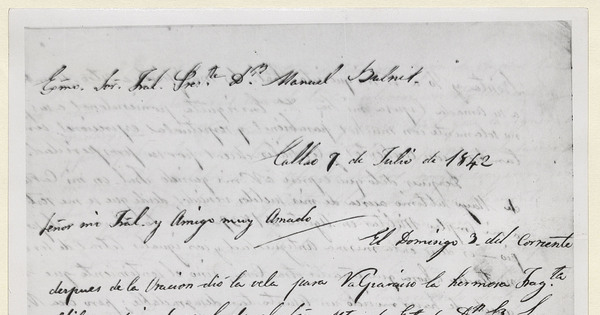 Exmo. Sor. Fral. Preste. Dn. Manuel Bulnes.
Callao 7. de Julio de 1842
Señor mi Fral. y Amigo muy Amado
El Domingo 3. del Corriente
despues de la Oracion dió la vela para Valparaiso la hermosa Frag.ta